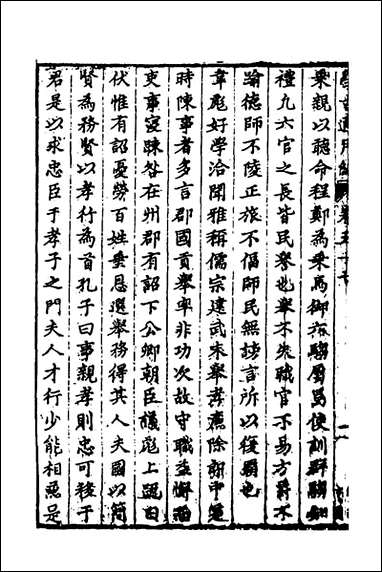 乘親以聽命程鄭為乘馬御六騶屬焉使訓群騶知
禮凡六官之長皆民譽也舉不失職官不易方爵不
踰德師不陵正旅不偪師民無謗言所以復霸也
韋彪好學洽聞雅稱儒宗建武末舉孝廉除郎中是
時陳事者多言郡國貢舉率非功次故守職益懈而
吏事寖踈咎在州郡有詔下公卿朝臣議彪上議曰
伏惟有詔憂勞百姓垂恩選舉務得其人夫國以簡
賢為務賢以孝行為首孔子曰事親孝則忠可移于
君是以求忠臣于孝子之門夫人才行少能相兼是